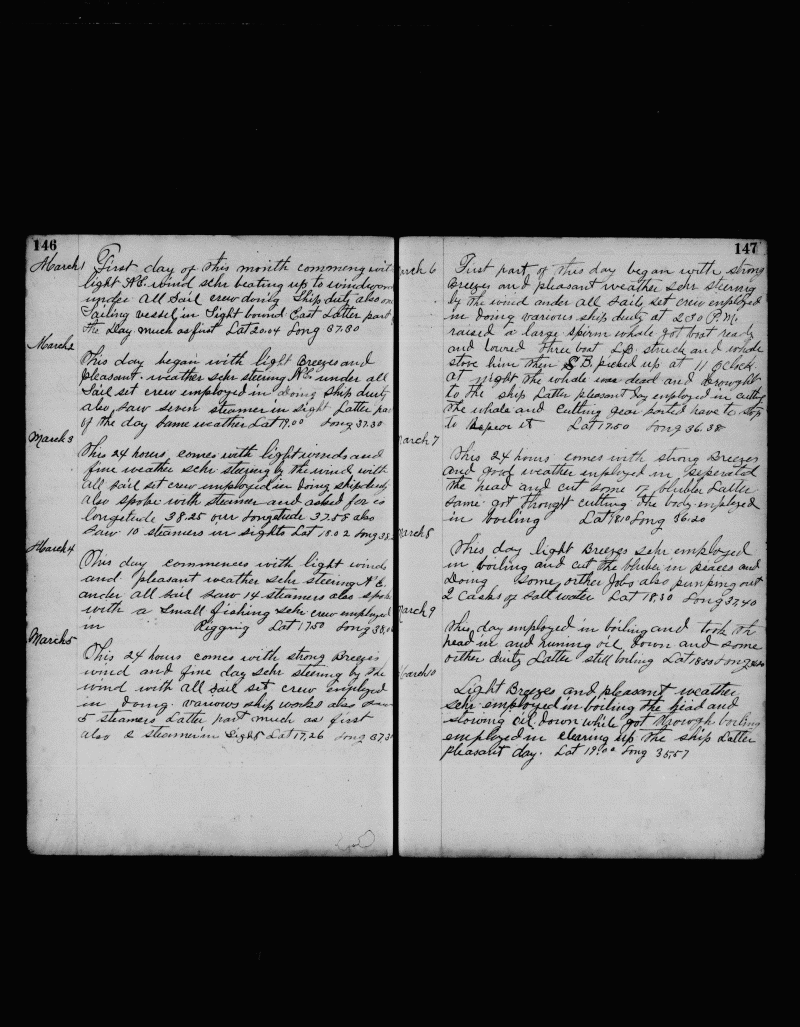 146
March 1 First day of this month commencing with
light N.E. wind schr beating up to windward
under all sail crew doing Ship duty also one
Sailing vessel in Sight bound East Latter part
the Day much as first Lat 20.04 Long 37.30
March 2
This day began with light Breezes and
pleasant weather schr steering N.E. under all
Sail set crew employed in doing Ship duty
also saw seven steamer in sight Latter part
of the day Same weather Lat 19.00 Long 37.30
March 3
This 24 hours comes with light winds and
fine weather schr steering by the wind with
all sail set crew employed in doing ship duty
also spoke with steamer and asked for is
longetude 38.25 our Longetude 37.58 also
saw 10 steamers in sights Lat 18.02 Long 38
March 4
This day commences with light winds
and pleasant weather schr steering N.E.
under all sail saw 14 steamers also spoke
with a small fishing schr crew employed
in Rigging Lat 17.50 Long 38.0
March 5
This 24 hours comes with strong Breezes
wind and fine day schr steering by the
wind with all sail set crew employed
in doing various ship works also saw
5 steamers Latter part much as first
also 2 steamer in Sight Lat 17,26 Long 37.3
147
March 6 First part of this day began with strong
Breezes and pleasant weather schr steering
by the wind under all sails set crew employed
in doing various ship duty at 2.30 P.M.
raised a large spirm whale got boat ready
and lowred three boat L.B. struck and whale
stove him then S.B. picked up at 11 OClock
at night the whale was dead and browght
to the ship Latter pleasant Day employed in cutting
the whale and Cutting gear parted have to stop
to Repear it Lat 17.50 Long 36.38
March 7
This 24 hours comes with strong Breezes
and good weather employed in seperated
the head and cut some of blubber Latter
same got throught cutting the body employed
in boiling Lat 18.10 Long 36.20
March 8
This day light Breezes schr employed
in boiling and cut the bluber in peaces and
Doing some orther Jobs also pumping out
2 Casks of Salt water Lat 18,30 Long 37,40
March 9
This day employed in boiling and took th
head in and runing oil down and some
orther duty Latter still boiling Lat 18.50 Long
March 10
Light Breezes and pleasant weather
schr employed in boiling the head and
stowing oil down while got through boiling
employed in clearing up the ship Latter
pleasant day. Lat 19.00 Long 35.57